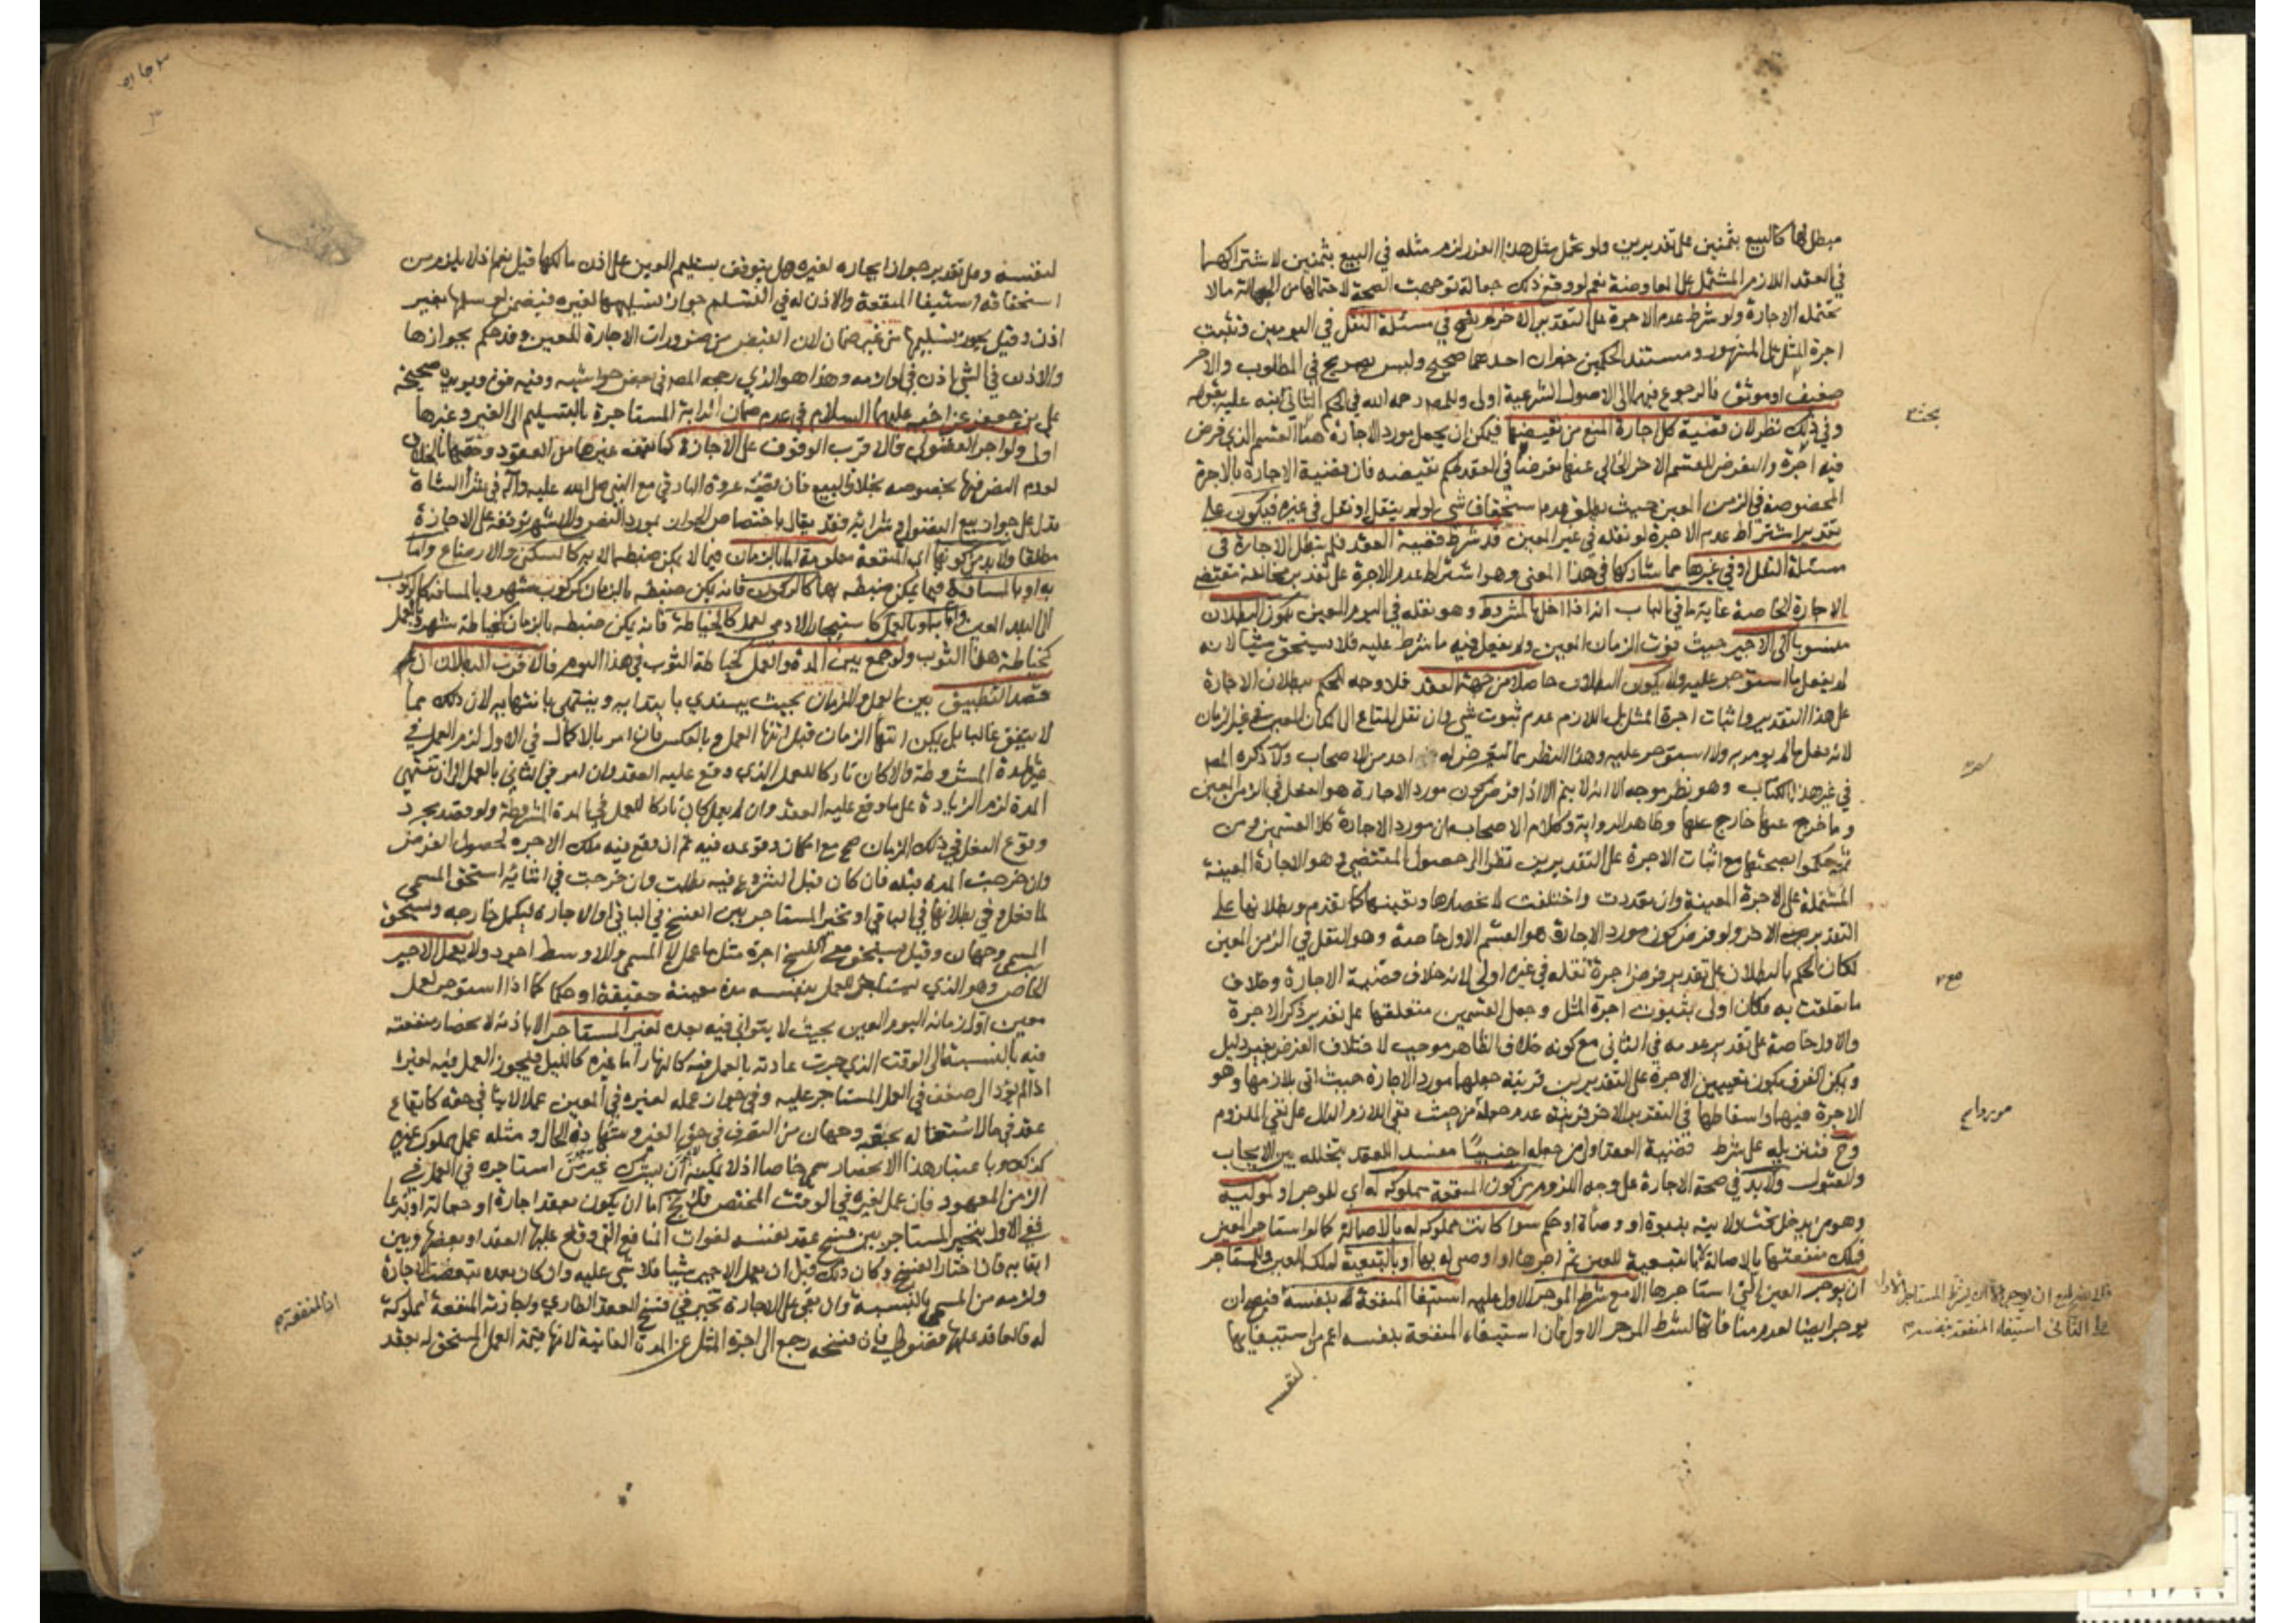 مبطل لها كالبيع بثمنين على تقديرين ولو تحمل مثل هذا الغرر لزم مثله في البيع بثمنين لاشتراكهما
في العقد اللازم المشتمل على المعاوضة نعم لو وقع ذلك جعالة توجهت الصحة لاحتمالها من الجهالة ما لا
تحتمله الاجارة ولو شرط عدم الاجرة على التقدير الاخر لم يصح في مسئلة النقل في اليومين وتثبت
اجرة المثل على المشهور ومستند الحكمين خبران احدهما صحيح وليس بصريح في المطلوب والاخر
ضعيف او موثق فالرجوع فيهما الى الاصول الشرعية اولى وللمص رحمه الله في الحكم الثاني نبه عليه بقوله
وفي ذلك نظر لان قضية كل اجارة المنع من نقيضها فيمكن ان يجعل مورد الاجارة هنا القسم الذي فرض
فيه اجرة والتعرض للقسم الاخر الخالي عنها تعرضا في العقد لحكم نقيضه فان قضية الاجارة بالاجرة
المخصوصة في الزمن المعين حيث يطلق عدم استحقاق شي لو لم ينقل او نقل في غيره فيكون على
تقدير اشتراط عدم الاجرة لو نقله في غير المعين قد شرط قضية العقد فلم تبطل الاجارة في
مسئلة النقل او في غيرها مما شاركها في هذا المعنى وهو اشتراط عدم الاجرة على تقدير مخالفة مقتضى
الاجارة الخاصة غاية ما في الباب انه اذا اخل بالمشروط وهو نقله في اليوم المعين يكون البطلان
منسوبا الى الاجير حيث فوت الزمان المعين ولم يفعل فيه ما شرط عليه فلا يستحق شيئا لانه
لم يفعل ما استوجر عليه ولا يكون البطلان حاصلا من جهة العقد فلا وجه للحكم ببطلان الاجارة
على هذا التقدير واثبات اجرة المثل بل اللازم عدم ثبوت شي وان نقل المتاع الى المكان المعين في غير الزمان
لانه فعل ما لم يومر به ولا استوجر عليه وهذا النظر مما لم يتعرض له احد من الاصحاب ولا ذكره المص
في غير هذا الكتاب وهو نظر موجه الا انه لا يتم الا اذا فرض كون مورد الاجارة هو الفعل في الزمن المعين
وما خرج عنه خارج عنها وظاهر الرواية وكلام الاصحاب ان مورد الاجارة كلا القسمين ومن
ثم حكموا بصحتها مع اثبات الاجرة على التقديرين نظرا الى حصول المقتضي وهو الاجارة المعينة
المشتملة على الاجرة المعينة وان تعددت واختلفت لانحصارها وتعينها كما تقدم وبطلانها على
التقدير الاخر ولو فرض كون مورد الاجارة هو القسم الاول خاصة وهو النقل في الزمن المعين
لكان الحكم بالبطلان على تقدير فرض اجرة نقله في غيره اولى لانه خلاف قضية الاجارة وخلاف
ما تعلقت به فكان اولى بثبوت اجرة المثل وجعل القسمين متعلقها على تقدير ذكر الاجرة
والاول خاصة على تقدير عدمه في الثاني مع كونه خلاف الظاهر موجب لاختلاف الفرض بغير دليل
ويمكن الفرق بكون تعيين الاجرة على التقديرين قرينة جعلهما مورد الاجارة حيث اتى بلازمها وهو
الاجرة فيهما واسقاطها في التقدير الاخر قرينة عدم جعله من حيث نفي اللازم الدال على نفي الملزوم
وح فتنزيله على شرط قضية العقد اولى من جعله اجنبيا مفسدا للعقد بتخلله بين الايجاب
والقبول ولا بد في صحة الاجارة على وجه اللزوم من كون المنفعة مملوكة له اي للموجر او لموليه
وهو من يدخل تحت ولايته ببنوة او وصاية او حكم سوا كانت مملوكة له بالاصالة كما لو استاجر العين
فملك منفعتها بالاصالة لا بالتبعية للعين ثم اجرها او اوصي له بها او بالتبعية لملك العين وللمستاجر
ان يوجر العين التي استاجرها الا مع شرط الموجر الاول عليه استيفا المنفعة له بنفسه فيصح ان
يوجر ايضا لعدم منافاتها لشرط الموجر الاول فان استيفاء المنفعة بنفسه اعم من استيفايها
لنفسه
بحث
لنفسه وعلى تقدير جواز ايجاره لغيره هل يتوقف تسليم العين على اذن مالكها قيل نعم اذ لا يلزم من
استحقاقه استيفا المنفعة والاذن له في التسلم جواز تسليمها لغيره فيضمن لو سلمها بغير
اذن وقيل يجوز تسليمها من غير ضمان لان القبض من ضرورات الاجارة للعين وقد حكم بجوازها
والاذن في الشي اذن في لوازمه وهذا هو الذي رجحه المص في بعض حواشيه وفيه قوة ويويده صحيحة
على بن جعفر عن اخيه عليهما السلام في عدم ضمان الدابة المستاجرة بالتسليم الى الغير وغيرها
اولى ولو اجر الفضولي فالاقرب الوقوف على الاجازة كما يقف غيرها من العقود وخصها بالخلاف
لعدم النص فيها بخصوصه بخلاف البيع فان قضية عروة البارقي مع النبي صلى الله عليه وآله في شرا الشاة
تدل على جواز بيع الفضولي وشرائه فقد يقال باختصاص الجواز بمورد النص والاشهر توقفه على الاجازة
مطلقا ولا بد من كونها اي المنفعة معلومة اما بالزمان فيما لا يمكن ضبطه الا به كالسكنى والارضاع واما
به او بالمسافة فيما يمكن ضبطه بهما كالركوب فانه يمكن ضبطه بالزمان كركوب شهر وبالمسافة كالركوب
الى البلد المعين واما به او بالعمل كاستيجار الادمي لعمل كالخياطة فانه يمكن ضبطه بالزمان كخياطة شهر وبالعمل
كخياطة هذا الثوب ولو جمع بين المدة والعمل كخياطة الثوب في هذا اليوم فالاقرب البطلان ان
قصد التطبيق بين العمل والزمان بحيث يبتدي بابتدايه وينتهي بانتهايه لان ذلك مما
لا يتفق غالبا بل يمكن انتها الزمان قبل انتها العمل وبالعكس فان امر بالاكمال في الاول لزم العمل في
غير المدة المشروطة والا كان تاركا للعمل الذي وقع عليه العقد وان امر في الثاني بالعمل الى ان تنتهي
المدة لزم الزيادة على ما وقع عليه العقد وان لم يعمل كان تاركا للعمل في المدة المشروطة ولو قصد مجرد
وقوع الفعل في ذلك الزمان صح مع امكان وقوعه فيه ثم ان وقع فيه ملك الاجرة لحصول الغرض
وان خرجت المدة قبله فان كان قبل الشروع فيه بطلت وان خرجت في اثنائه استحق المسمى
لما فعل وفي بطلانها في الباقي او تخير المستاجر بين الفسخ في الباقي او الاجازة ليكمل خارجه ويستحق
المسمى وجهان وقيل يستحق مع الفسخ اجرة مثل ما عمل لا المسمى والاوسط اجود ولا يعمل الاجير
الخاص وهو الذي يستاجر للعمل بنفسه مدة معينة حقيقة او حكما كما اذا استوجر لعمل
معين اول زمانه اليوم المعين بحيث لا يتوانى فيه بعده لغير المستاجر الا باذنه لانحصار منفعته
فيه بالنسبة الى الوقت الذي جرت عادته بالعمل فيه كالنهار اما غيره كالليل فيجوز العمل فيه لغيره
اذا لم يؤد الى ضعف في العمل المستاجر عليه وفي جواز عمله لغيره في المعين عملا لا ينافي حقه كايقاع
عقد في حال اشتغاله بحقه وجهان من التصرف في حق الغير وشهادة الحال ومثله عمل مملوك غيره
كذلك وباعتبار هذا الانحصار سمي خاصا اذ لا يمكنه ان يشرك غير من استاجره في العمل في
الزمن المعهود فان عمل لغيره في الوقت المختص فلا يخ اما ان يكون بعقد اجارة او جعالة او تبرعا
ففي الاول يتخير المستاجر بين فسخ عقد نفسه لفوات المنافع التي وقع عليها العقد او بعضها وبين
ابقائه فان اختار الفسخ وكان ذلك قبل ان يعمل الاجير شيئا فلا شي عليه وان كان بعده تبعضت الاجارة
ولزمه من المسمى بالنسبة وان بقي على الاجارة تخير في فسخ العقد الطاري واجازته اذ المنفعة مملوكة
له فالعاقد عليها فضولي فان فسخه رجع الى اجرة المثل عن المدة الفائتة لانها قيمة العمل المستحق له بعقد